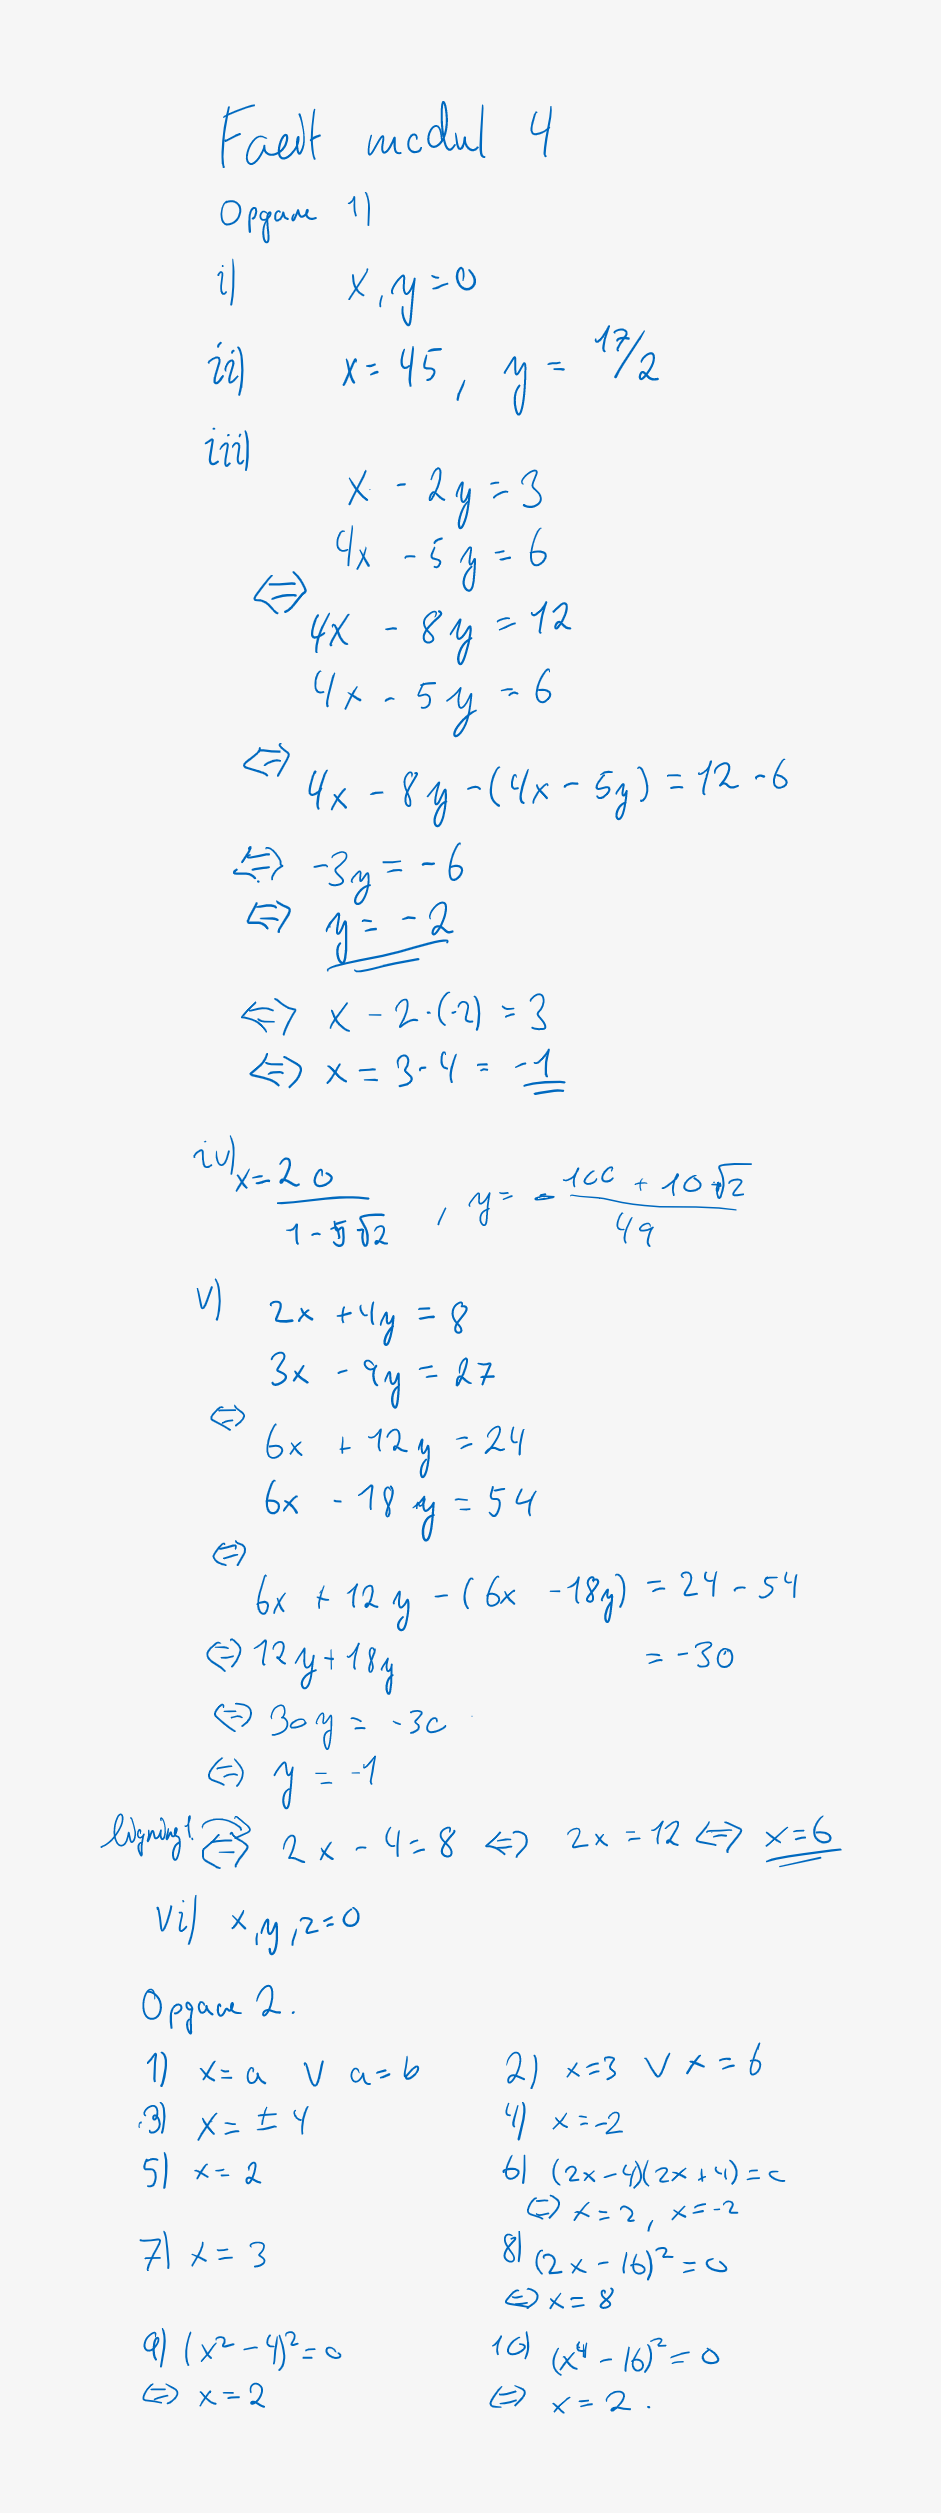 Facit modul 4
Opgave 1)
i) x, y = 0
ii) x = 45, y = 17/2
iii)
x - 2y = 3
4x - 5y = 6
⇔
4x - 8y = 12
4x - 5y = 6
⇔ 4x - 8y - (4x - 5y) = 12 - 6
⇔ -3y = -6
⇔ y = -2
⇔ x - 2·(-2) = 3
⇔ x = 3 - 4 = -1
iv) x = 20/(1 - 5√2), y = -(100 + 10√2)/49
v) 2x + 4y = 8
3x - 9y = 27
⇔
6x + 12y = 24
6x - 18y = 54
⇔
6x + 12y - (6x - 18y) = 24 - 54
⇔ 12y + 18y = -30
⇔ 30y = -30
⇔ y = -1
ligning 1. ⇔ 2x - 4 = 8 ⇔ 2x = 12 ⇔ x = 6
vi) x, y, z = 0
Opgave 2.
1) x = a ∨ a = b 2) x = 3 ∨ x = 6
3) x = ± 4 4) x = -2
5) x = 2 6) (2x - 4)(2x + 4) = 0
⇔ x = 2, x = -2
7) x = 3 8) (2x - 16)² = 0
⇔ x = 8
9) (x² - 4)² = 0 10) (x⁴ - 16)² = 0
⇔ x = 2 ⇔ x = 2.